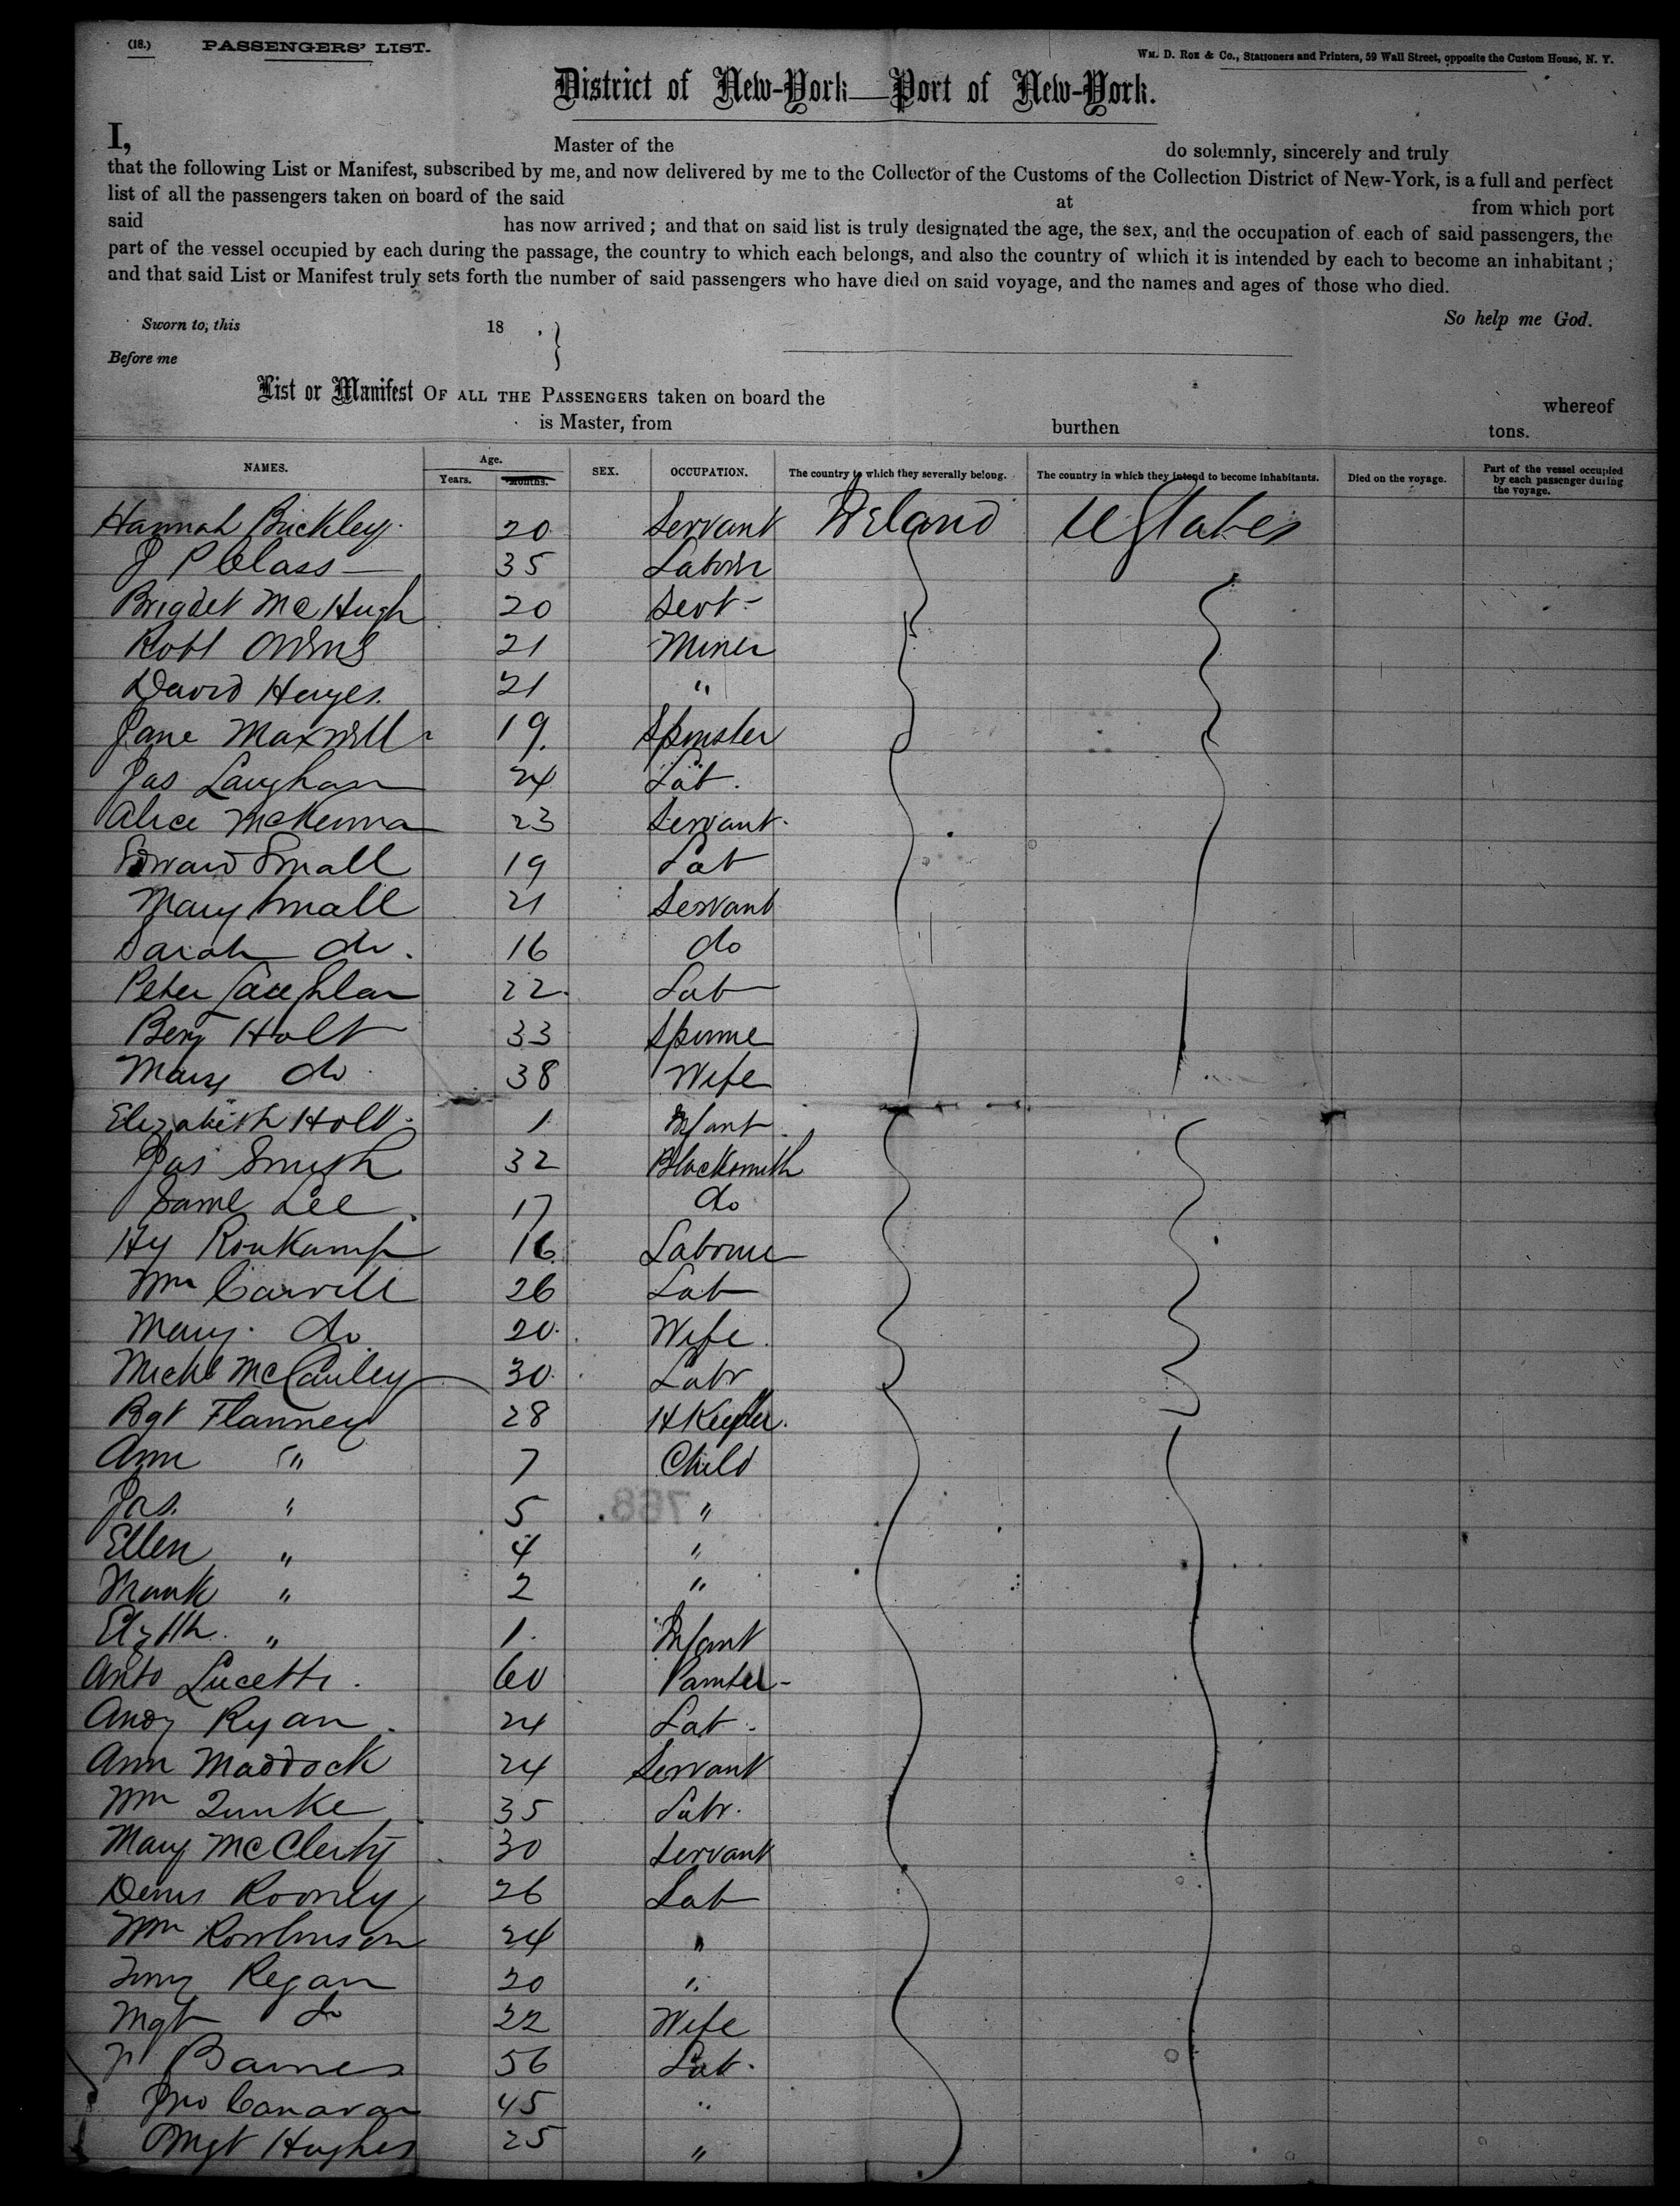 (18.) PASSENGERS' LIST.
Wm. D. Roe & Co., Stationers and Printers, 59 Wall Street, opposite the Custom House, N. Y.
District of New-York—Port of New-York.
I, Master of the do solemnly, sincerely and truly
that the following List or Manifest, subscribed by me, and now delivered by me to the Collector of the Customs of the Collection District of New-York, is a full and perfect
list of all the passengers taken on board of the said at from which port
said has now arrived; and that on said list is truly designated the age, the sex, and the occupation of each of said passengers, the
part of the vessel occupied by each during the passage, the country to which each belongs, and also the country of which it is intended by each to become an inhabitant;
and that said List or Manifest truly sets forth the number of said passengers who have died on said voyage, and the names and ages of those who died.
Sworn to, this 18 . } So help me God.
Before me
List or Manifest OF ALL THE PASSENGERS taken on board the whereof
is Master, from burthen tons.
NAMES. Age. Years. Months. SEX. OCCUPATION. The country to which they severally belong. The country in which they intend to become inhabitants. Died on the voyage. Part of the vessel occupied by each passenger during the voyage.
Hannah Buckley 20 Servant Ireland U States
J P Class 35 Laborer
Brigdet McHugh 20 Servt
Robt Owens 21 Miner
David Hayes 21 "
Jane Maxwell 19 Spinster
Jas Laughan 24 Lab.
Alice McKenna 23 Servant
Edward Small 19 Lab
Mary Small 21 Servant
Sarah do. 16 do
Peter Laughlan 22 Lab
Benj Holt 33
Mary do 38 Wife
Elizabeth Holt 1 Infant
Jas Smyth 32 Blacksmith
Saml Lee 17 do
Hy Ronkamp 16 Laborer
Wm Carvill 26 Lab
Mary do 20 Wife
Michl McCauley 30 Labr
Bgt Flannery 28 H Keeper
Ann " 7 Child
Jas. " 5 "
Ellen " 4 "
" 2 "
Elzth " 1 Infant
Anto Lucetti 60 Painter
Andy Ryan 24 Lab
Ann Maddock 24 Servant
Wm 35 Labr.
Mary McClerty 30 Servant
Denis Rooney 26 Lab
Wm Rowlinson 24 "
Regan 20 "
Mgt do 22 Wife
Barnes 56 Lab.
Jno Canavan 45 "
Mgt Hughes 25 "